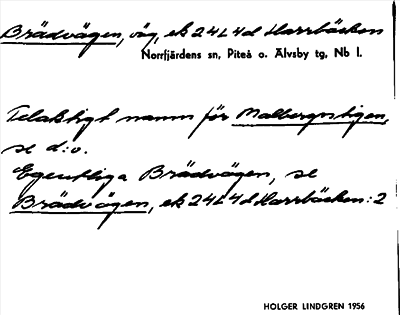 Brädvägen, väg, ek 24L4d Harrbäcken
Norrfjärdens sn, Piteå o. Älvsby tg, Nb l.
Felaktigt namn för Malbergsstigen,
se d:o.
Egentliga Brädvägen, se
Brädvägen, ek 24L4d Harrbäcken: 2
HOLGER LINDGREN 1956